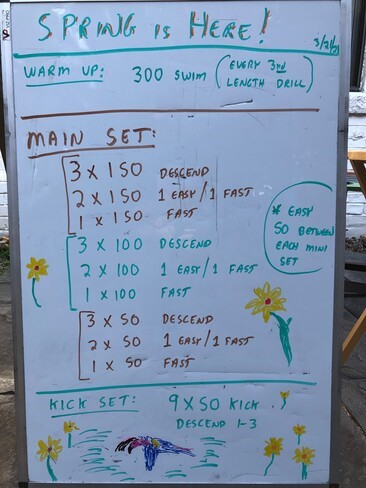 SPRING IS HERE!
3/21/21
WARM UP: 300 SWIM (EVERY 3rd
LENGTH DRILL)
MAIN SET:
3 x 150 DESCEND
2 x 150 1 EASY/1 FAST
1 x 150 FAST
3 x 100 DESCEND
2 x 100 1 EASY/1 FAST
1 x 100 FAST
* EASY
50 BETWEEN
EACH MINI
SET
3 x 50 DESCEND
2 x 50 1 EASY/1 FAST
1 x 50 FAST
KICK SET: 9 x 50 KICK
DESCEND 1-3